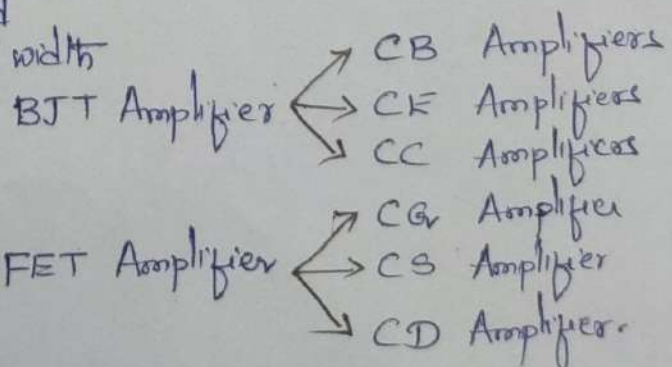 width
CB Amplifiers
BJT Amplifier CE Amplifiers
CC Amplifiers
CG Amplifier
FET Amplifier CS Amplifier
CD Amplifier.